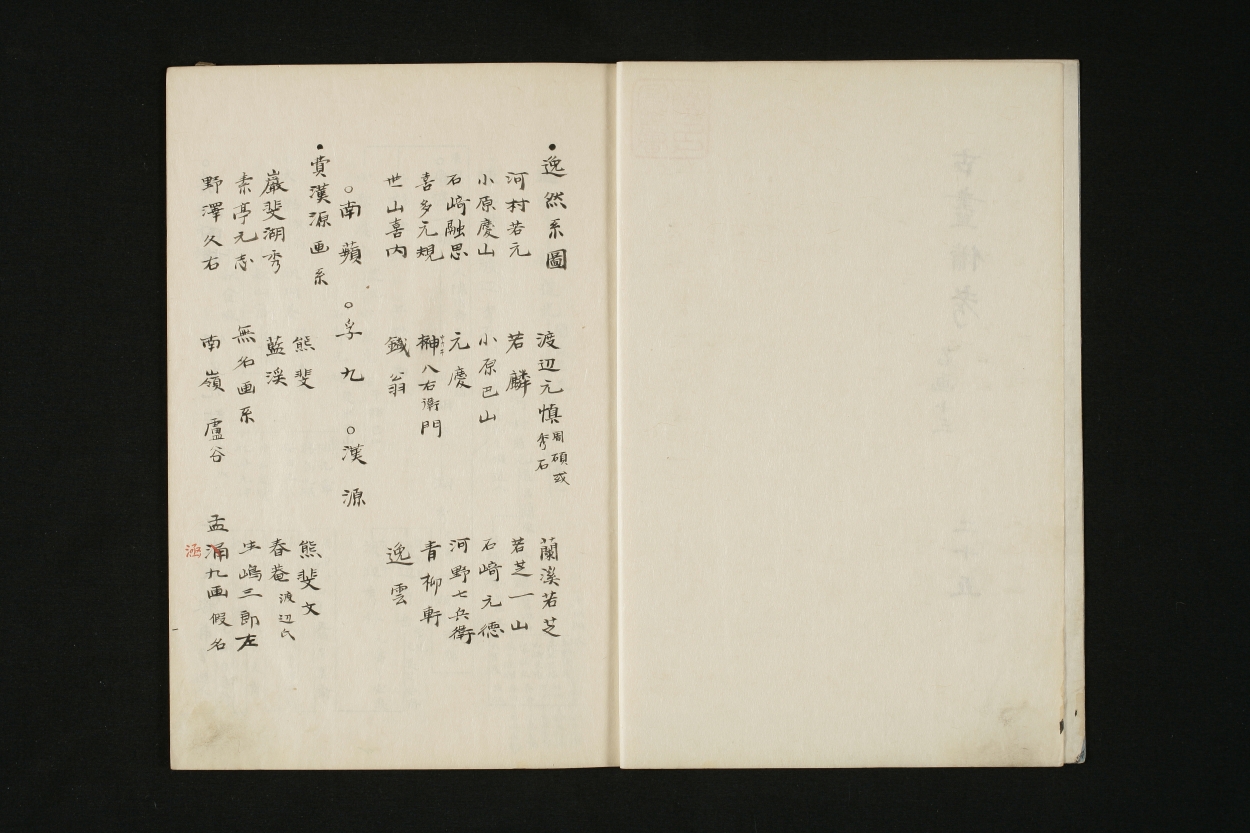 ・逸然系圖
渡辺元慎 周碩或秀石
蘭溪若芝
河村若元
若麟
若芝一山
小原慶山
小原巴山
石﨑元德
石﨑融思
元慶
河野七兵衛
喜多元規
榊八右衛門
青柳軒
世山喜内
鐵翁
逸雲
○南蘋 ○孚九 ○漢源
・費漢源画系
熊斐
熊斐文
巌斐湖秀
藍溪
春菴 渡辺氏
素亭元志
無名画系
生嶋三郎左
野澤久右
南嶺 盧谷
孟涌九画假名
涵